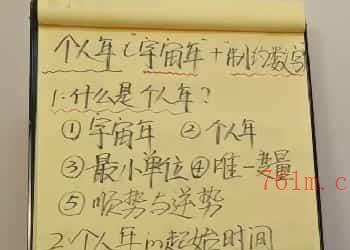 个人年（宇宙年＋制约数字
1.什么是个人年？
①宇宙年 ②个人年
③最小单位④唯一变量
⑤顺势与逆势
2.个人年的起始时间
761m.c